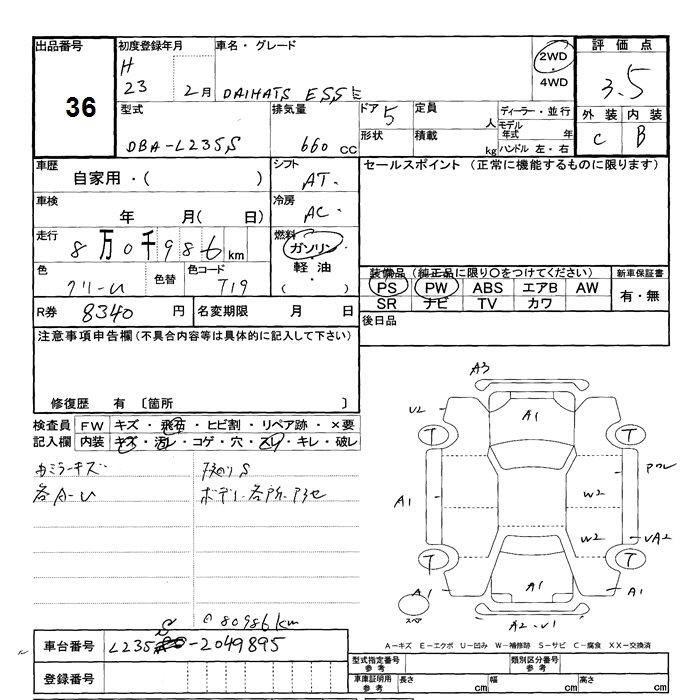 出品番号 初度登録年月 車名・グレード 評価点
36
H 23 2月 DAIHATS ESSE 2WD 4WD 3.5
型式 排気量 ドア 定員 ディーラー・並行 外装 内装
5 人 モデル年式 年 C B
DBA-L235S 660 CC 形状 積載 kg ハンドル 左・右
車歴 シフト セールスポイント(正常に機能するものに限ります)
自家用・( ) AT.
車検 冷房
年 月( 日) AC.
走行 燃料
8万0千986 km ガソリン
色 色替 色コード 軽油 装備品(純正品に限り○をつけてください) 新車保証書
T19 ( ) PS PW ABS エアB AW 有・無
SR ナビ TV カワ
R券 8340 円 名変期限 月 日 後日品
注意事項申告欄(不具合内容等は具体的に記入して下さい)
修復歴 有 〔箇所 〕
検査員 FW キズ・飛石・ヒビ割・リペア跡・×要
記入欄 内装 キズ・汚レ・コゲ・穴・スレ・キレ・破レ
A3
U2 A1
T T
A1 W2
W2 UA2
T T
A1 A1 A1
スペ A2-U1
80986km
車台番号 L235S-2049895
A-キズ E-エクボ U-凹み W-補修跡 S-サビ C-腐食 XX-交換済
登録番号
型式指定番号 参考 類別区分番号 参考
車庫証明用 参考 長さ cm 幅 cm 高さ cm